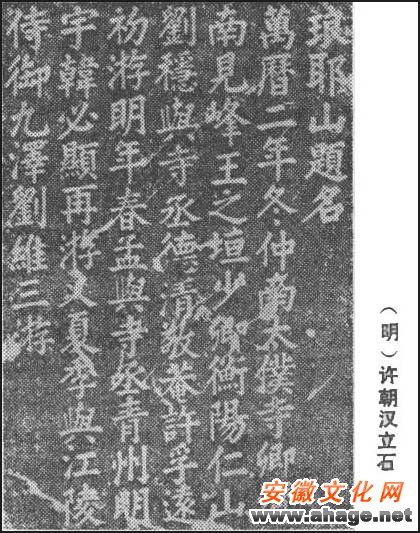 琅耶山題名
萬曆二年冬仲南太僕寺卿
南見峰王之垣少卿衡陽仁山
劉穩與寺丞德清敬菴許孚遠
初游明年春孟與寺丞青州明
宇韓必顯再游又夏季與江陵
侍御九澤劉維三游
（明）许朝汉立石
安徽文化网
www.ahage.net